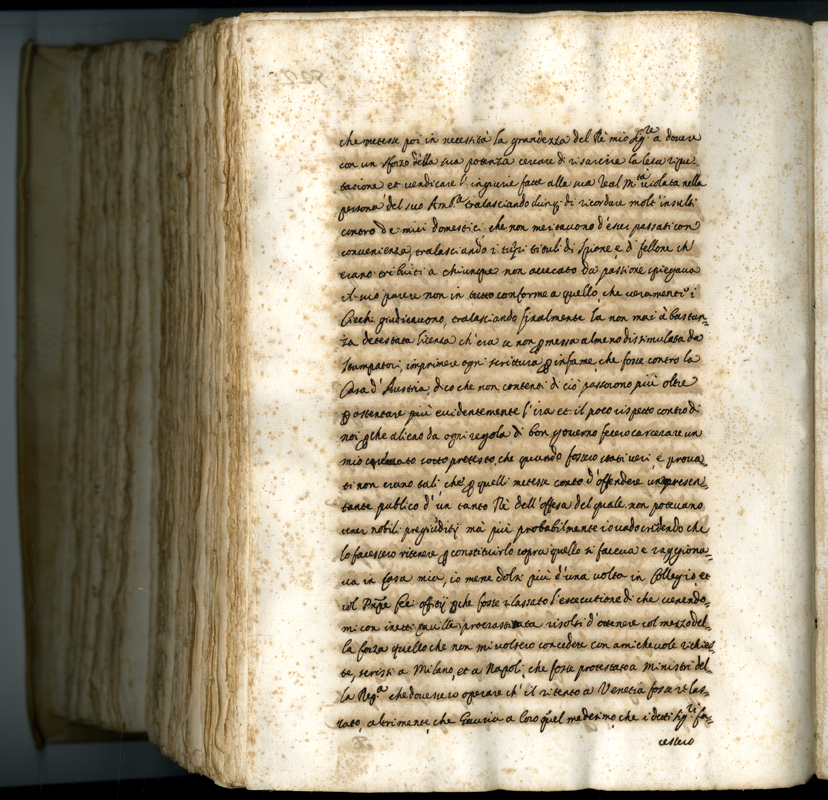 che metesse poi in necessità la grandezza del Rè mio sig.re a dovere
con un sforzo della sua potenza cercare di risarcire la lesa ripu-
tatione et vendicare l'ingiurie facte alla sua real M.tà violata nella
persona del suo Amb.re tralasciando dunq; di ricordare molt'insulti
contro de miei domestici che non meritavono d'esser passati con
convenienza, tralasciando i titoli di spione, e di fellone ch'
erano tribuiti a chiunque non accecato da passione spiegava
il suo parere non in tutto conforme a quello, che veramenti i
Ciechi giudicavono, tralasciando finalmente la non mai à bastan-
za detestata licenza ch'era se non ꝑmessa almeno dissimulata da
stampatori, imprimere ogni scrittura ꝑ infame, che fosse contro la
Casa d'Austria, dico che non contenti di ciò passorono più oltre
ꝑ ostentare più evidentemente l'ira et il poco rispetto contro di
noi ꝑche alieno da ogni regola di bon governo fecero carcerare un
mio sotto pretesto, che quando fossero stati veri, e prova-
ti non erano tali che ꝑ quelli metesse conto d'offendere un presen-
tante publico d'un tanto Rè dell'offesa del quale non potevano
nobili pregiuditij mà più probabilmente io vado credendo che
lo facessero ritenere ꝑ constituirlo sopra quello si faceva e raggiona-
va in Casa mia, io mene dolsi più d'una volta in Collegio et
col Pnpe feci offitij ꝑche fosse rilassato l'essecutione di che venendo-
mi con inetti procrastinata risolsi d'ottenere col mezzo del-
la forza quello che non mi volsero concedere con amichevole richies-
te, scrissi a Milano, et a Napoli, che fosse protestato a Ministri del-
la Rep.ca che dovessero operare ch'il ritento a Venetia fosse rilas-
sato, altrimente, che Sauria a loro quel medesimo, che i detti sig.ri fa-
cessero